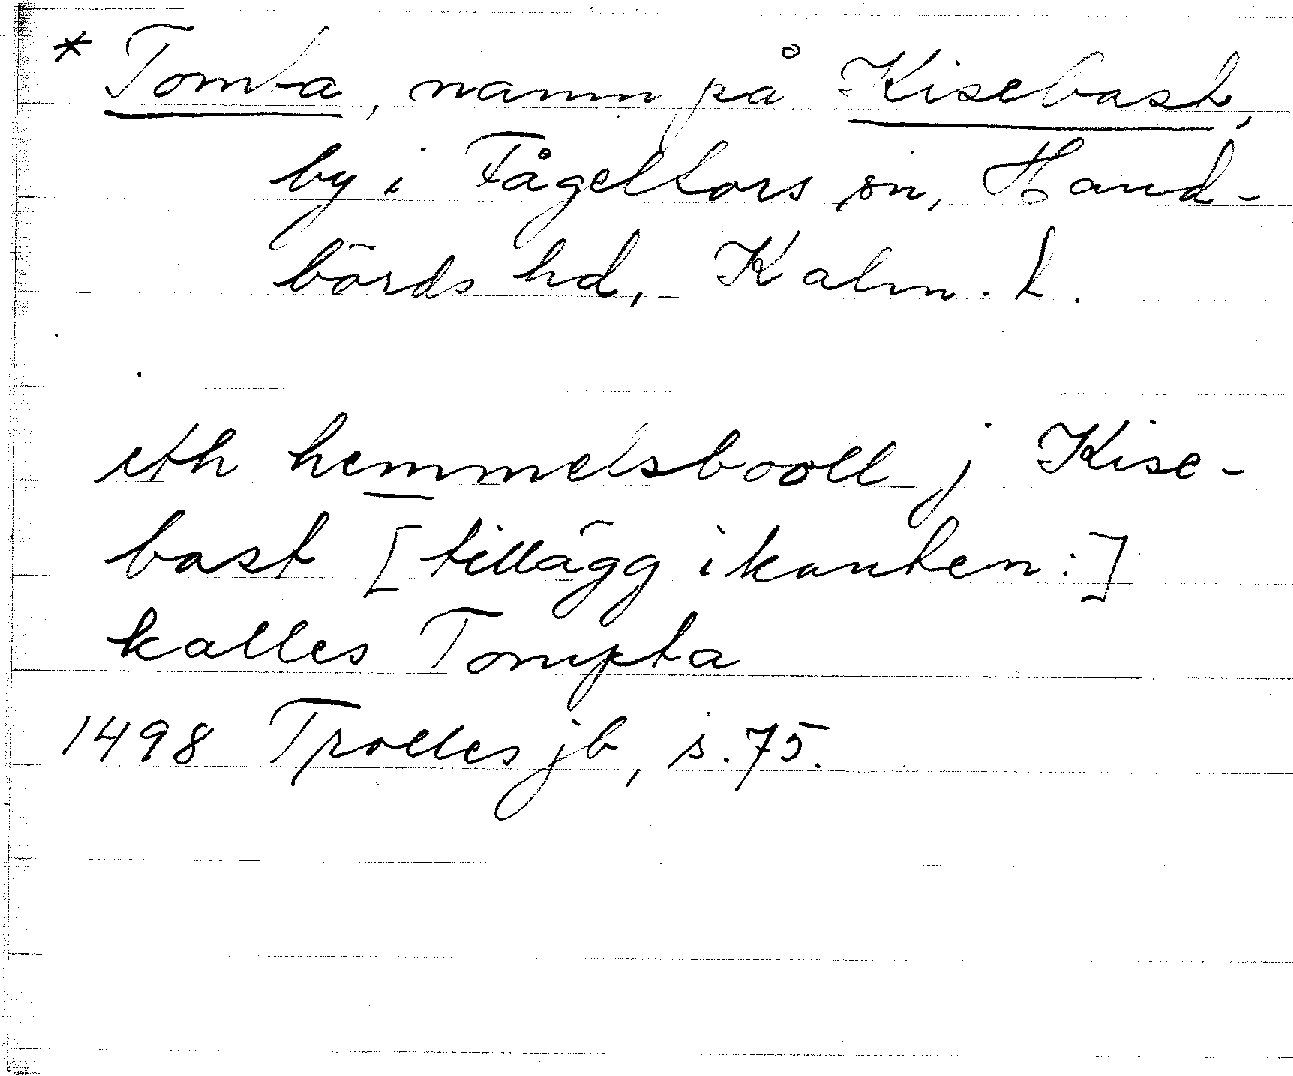 * Tomta, namn på Kisebast,
by i Fågelfors sn, Hand-
börds hd, Kalm. l.
eth hemmelsbooll j Kise-
bast [tillägg i kanten:]
kalles Tompta
1498 Trolles jb, s. 75.